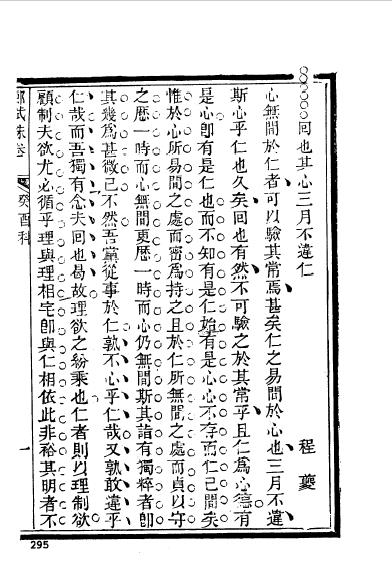 回也其心三月不違仁
程夔
心無間於仁者可以驗其常焉甚矣仁之易間於心也三月不違
斯心乎仁也久矣回也有然不可驗之於其常乎且仁爲心德有
是心卽有是仁也而不知有是仁始有是心心不存而仁已間矣
惟於心所易間之處而密爲持之且於仁所無間之處而貞以守
之歷一時而心無間更歷一時而心仍無間斯其詣有獨粹者卽
其幾爲甚微已不然吾黨從事於仁孰不心乎仁哉又孰敢違乎
仁哉而吾獨有念夫回也曷故理欲之紛乘也仁者則以理制欲
顧制夫欲尤必循乎理與理相宅卽與仁相依此非裕其明者不
鄉試硃卷
癸酉科
一
295